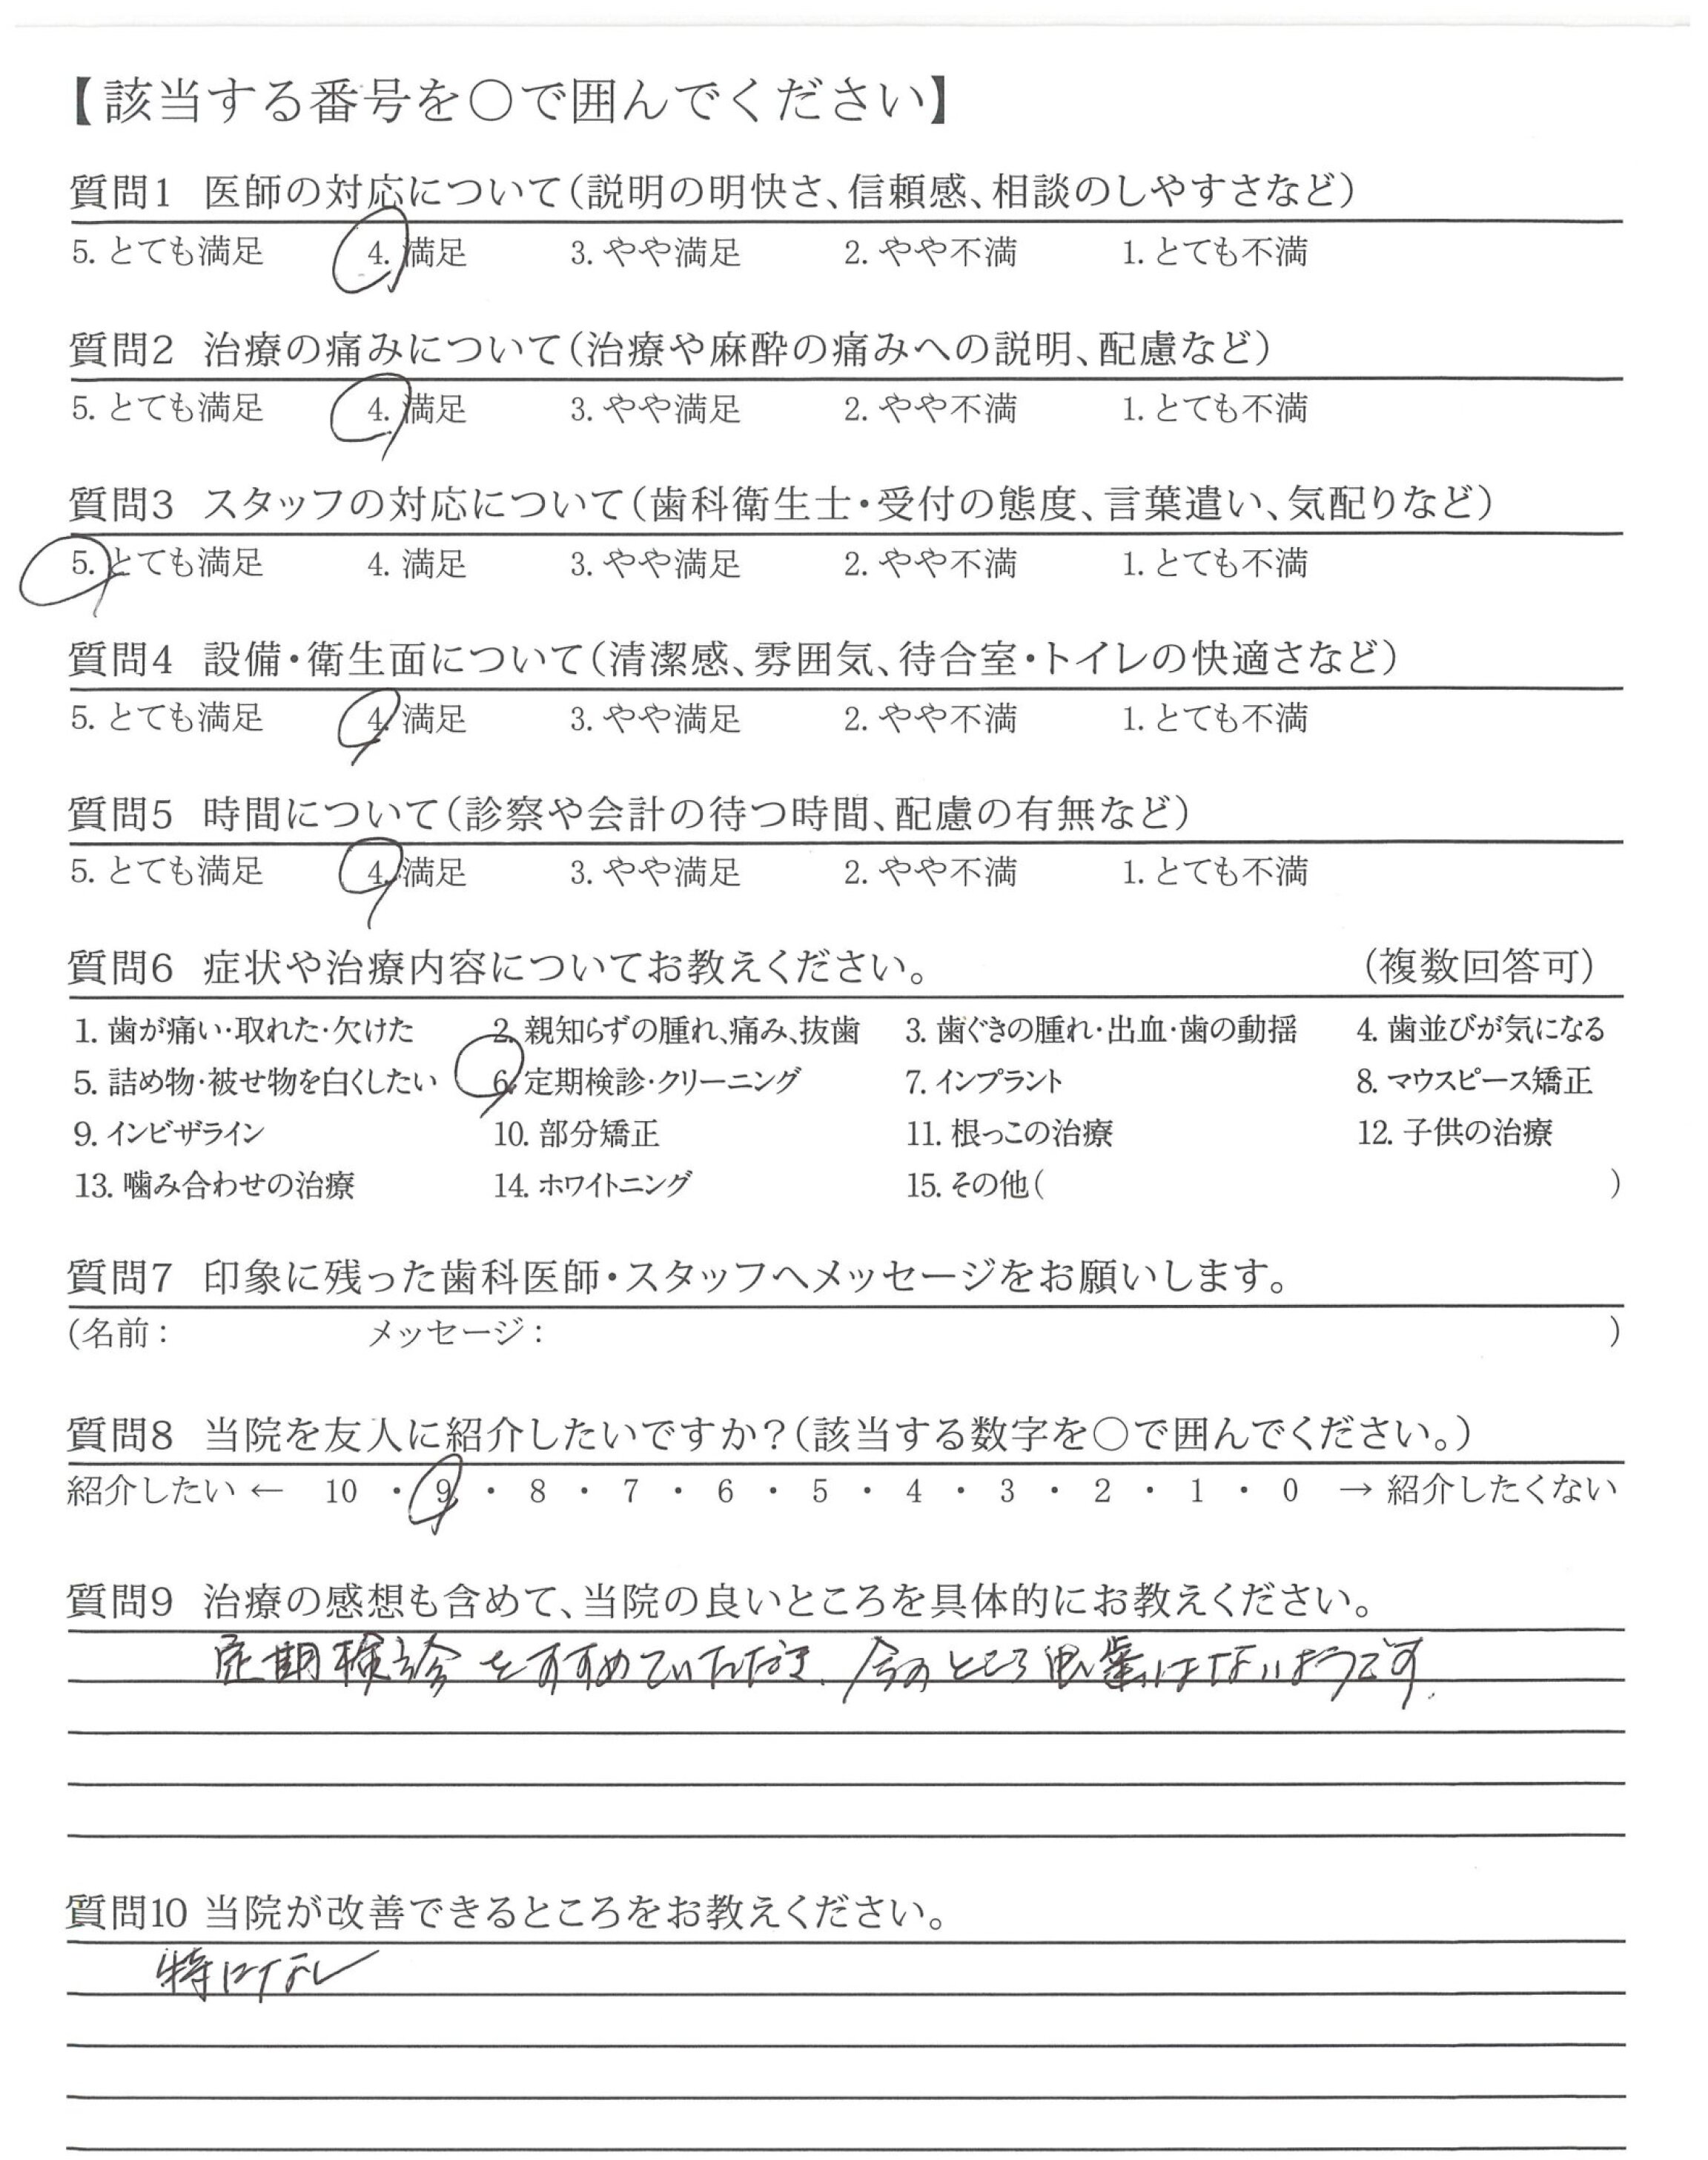 【該当する番号を○で囲んでください】
質問1 医師の対応について(説明の明快さ、信頼感、相談のしやすさなど)
5. とても満足 4. 満足 3. やや満足 2. やや不満 1. とても不満
質問2 治療の痛みについて(治療や麻酔の痛みへの説明、配慮など)
5. とても満足 4. 満足 3. やや満足 2. やや不満 1. とても不満
質問3 スタッフの対応について(歯科衛生士・受付の態度、言葉遣い、気配りなど)
5. とても満足 4. 満足 3. やや満足 2. やや不満 1. とても不満
質問4 設備・衛生面について(清潔感、雰囲気、待合室・トイレの快適さなど)
5. とても満足 4. 満足 3. やや満足 2. やや不満 1. とても不満
質問5 時間について(診察や会計の待つ時間、配慮の有無など)
5. とても満足 4. 満足 3. やや満足 2. やや不満 1. とても不満
質問6 症状や治療内容についてお教えください。 (複数回答可)
1. 歯が痛い・取れた・欠けた 2. 親知らずの腫れ、痛み、抜歯 3. 歯ぐきの腫れ・出血・歯の動揺 4. 歯並びが気になる
5. 詰め物・被せ物を白くしたい 6. 定期検診・クリーニング 7. インプラント 8. マウスピース矯正
9. インビザライン 10. 部分矯正 11. 根っこの治療 12. 子供の治療
13. 噛み合わせの治療 14. ホワイトニング 15. その他( )
質問7 印象に残った歯科医師・スタッフへメッセージをお願いします。
(名前: メッセージ: )
質問8 当院を友人に紹介したいですか?(該当する数字を○で囲んでください。)
紹介したい ← 10 ・ 9 ・ 8 ・ 7 ・ 6 ・ 5 ・ 4 ・ 3 ・ 2 ・ 1 ・ 0 → 紹介したくない
質問9 治療の感想も含めて、当院の良いところを具体的にお教えください。
定期検診をすすめていただき、今のところ虫歯はないようです。
質問10 当院が改善できるところをお教えください。
特になし